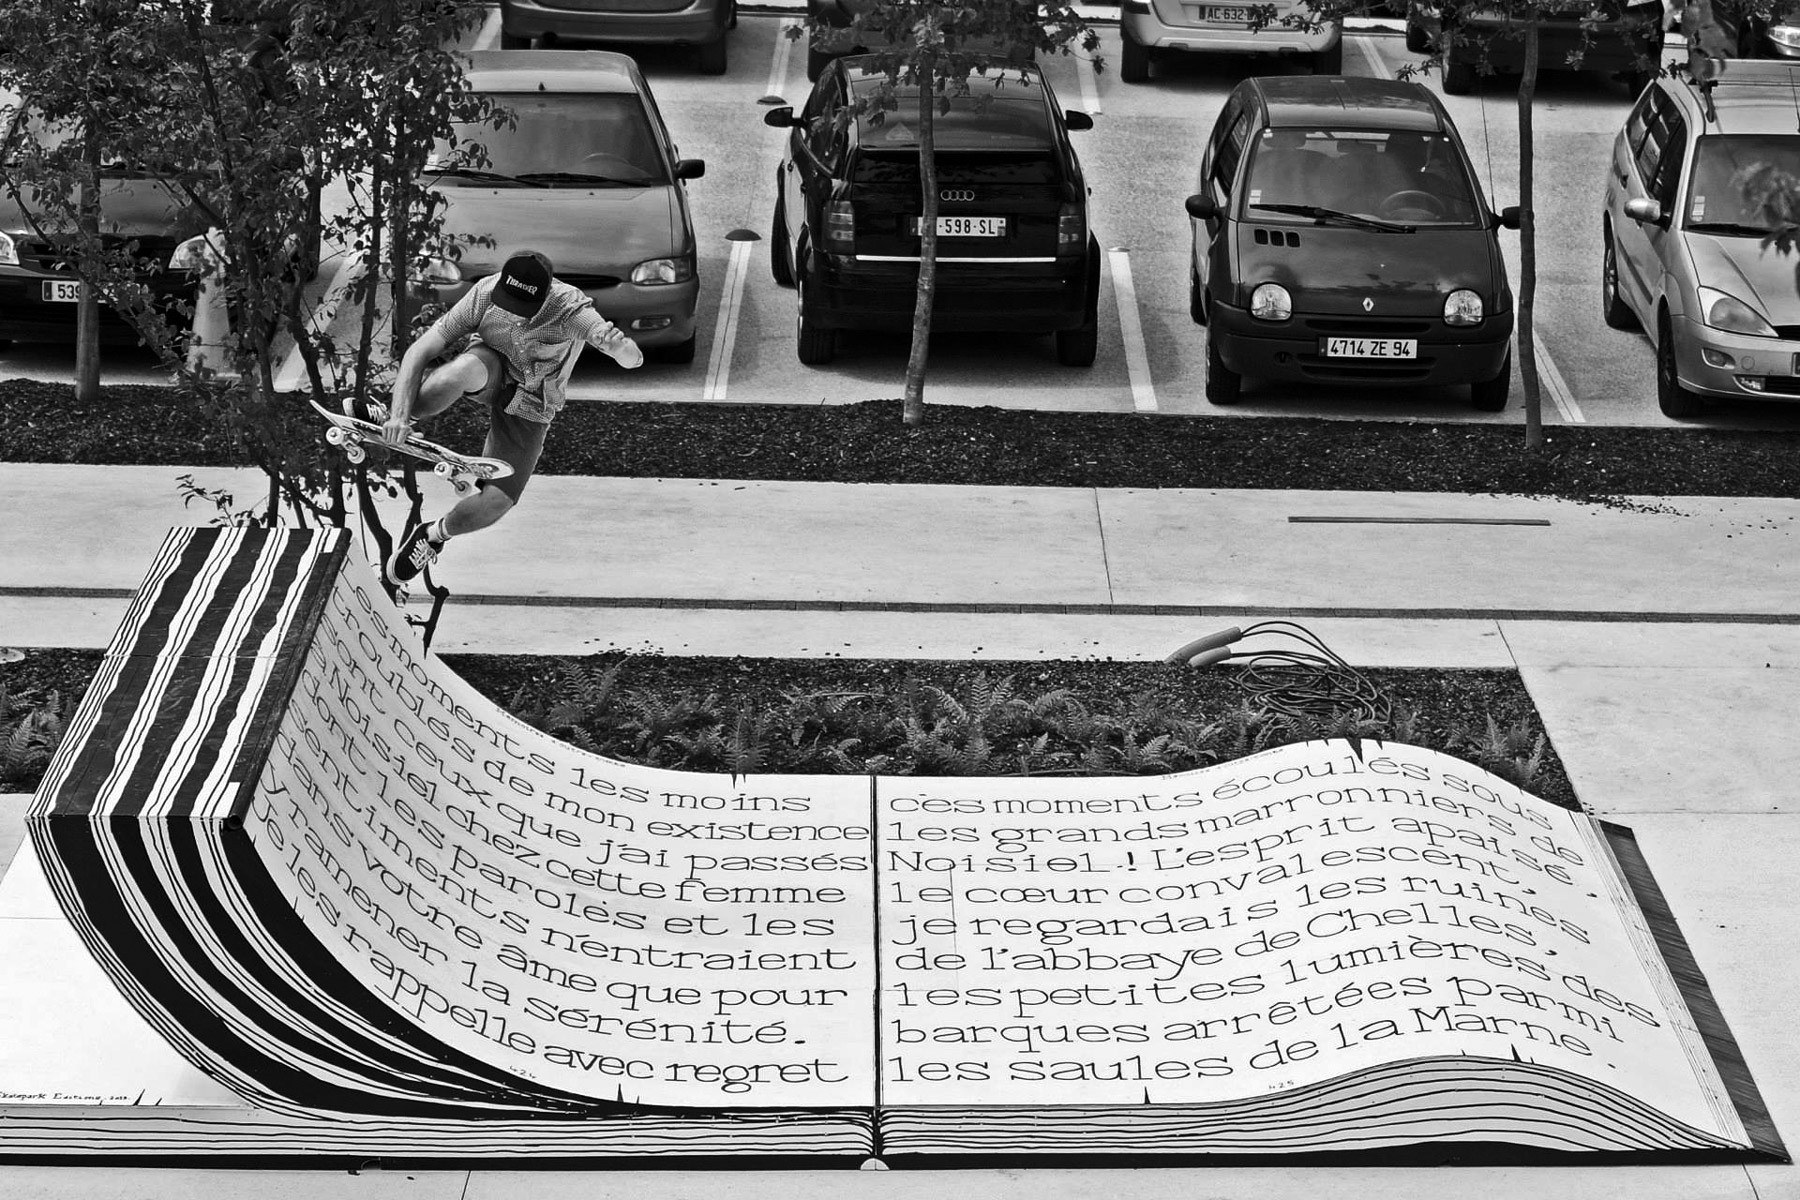 AC-632
598·SL
539
4714 ZE 94
THRASHER
Les moments les moins
troublés de mon existence
sont ceux que j'ai passés
à Noisiel chez cette femme
dont les paroles et les
sentiments n'entraient
dans votre âme que pour
y ramener la sérénité.
Je les rappelle avec regret
424
ces moments écoulés sous
les grands marronniers de
Noisiel ! L'esprit apaisé.
le cœur convalescent,
je regardais les ruines
de l'abbaye de Chelles,
les petites lumières des
barques arrêtées parmi
les saules de la Marne.
425
Skatepark Editions.